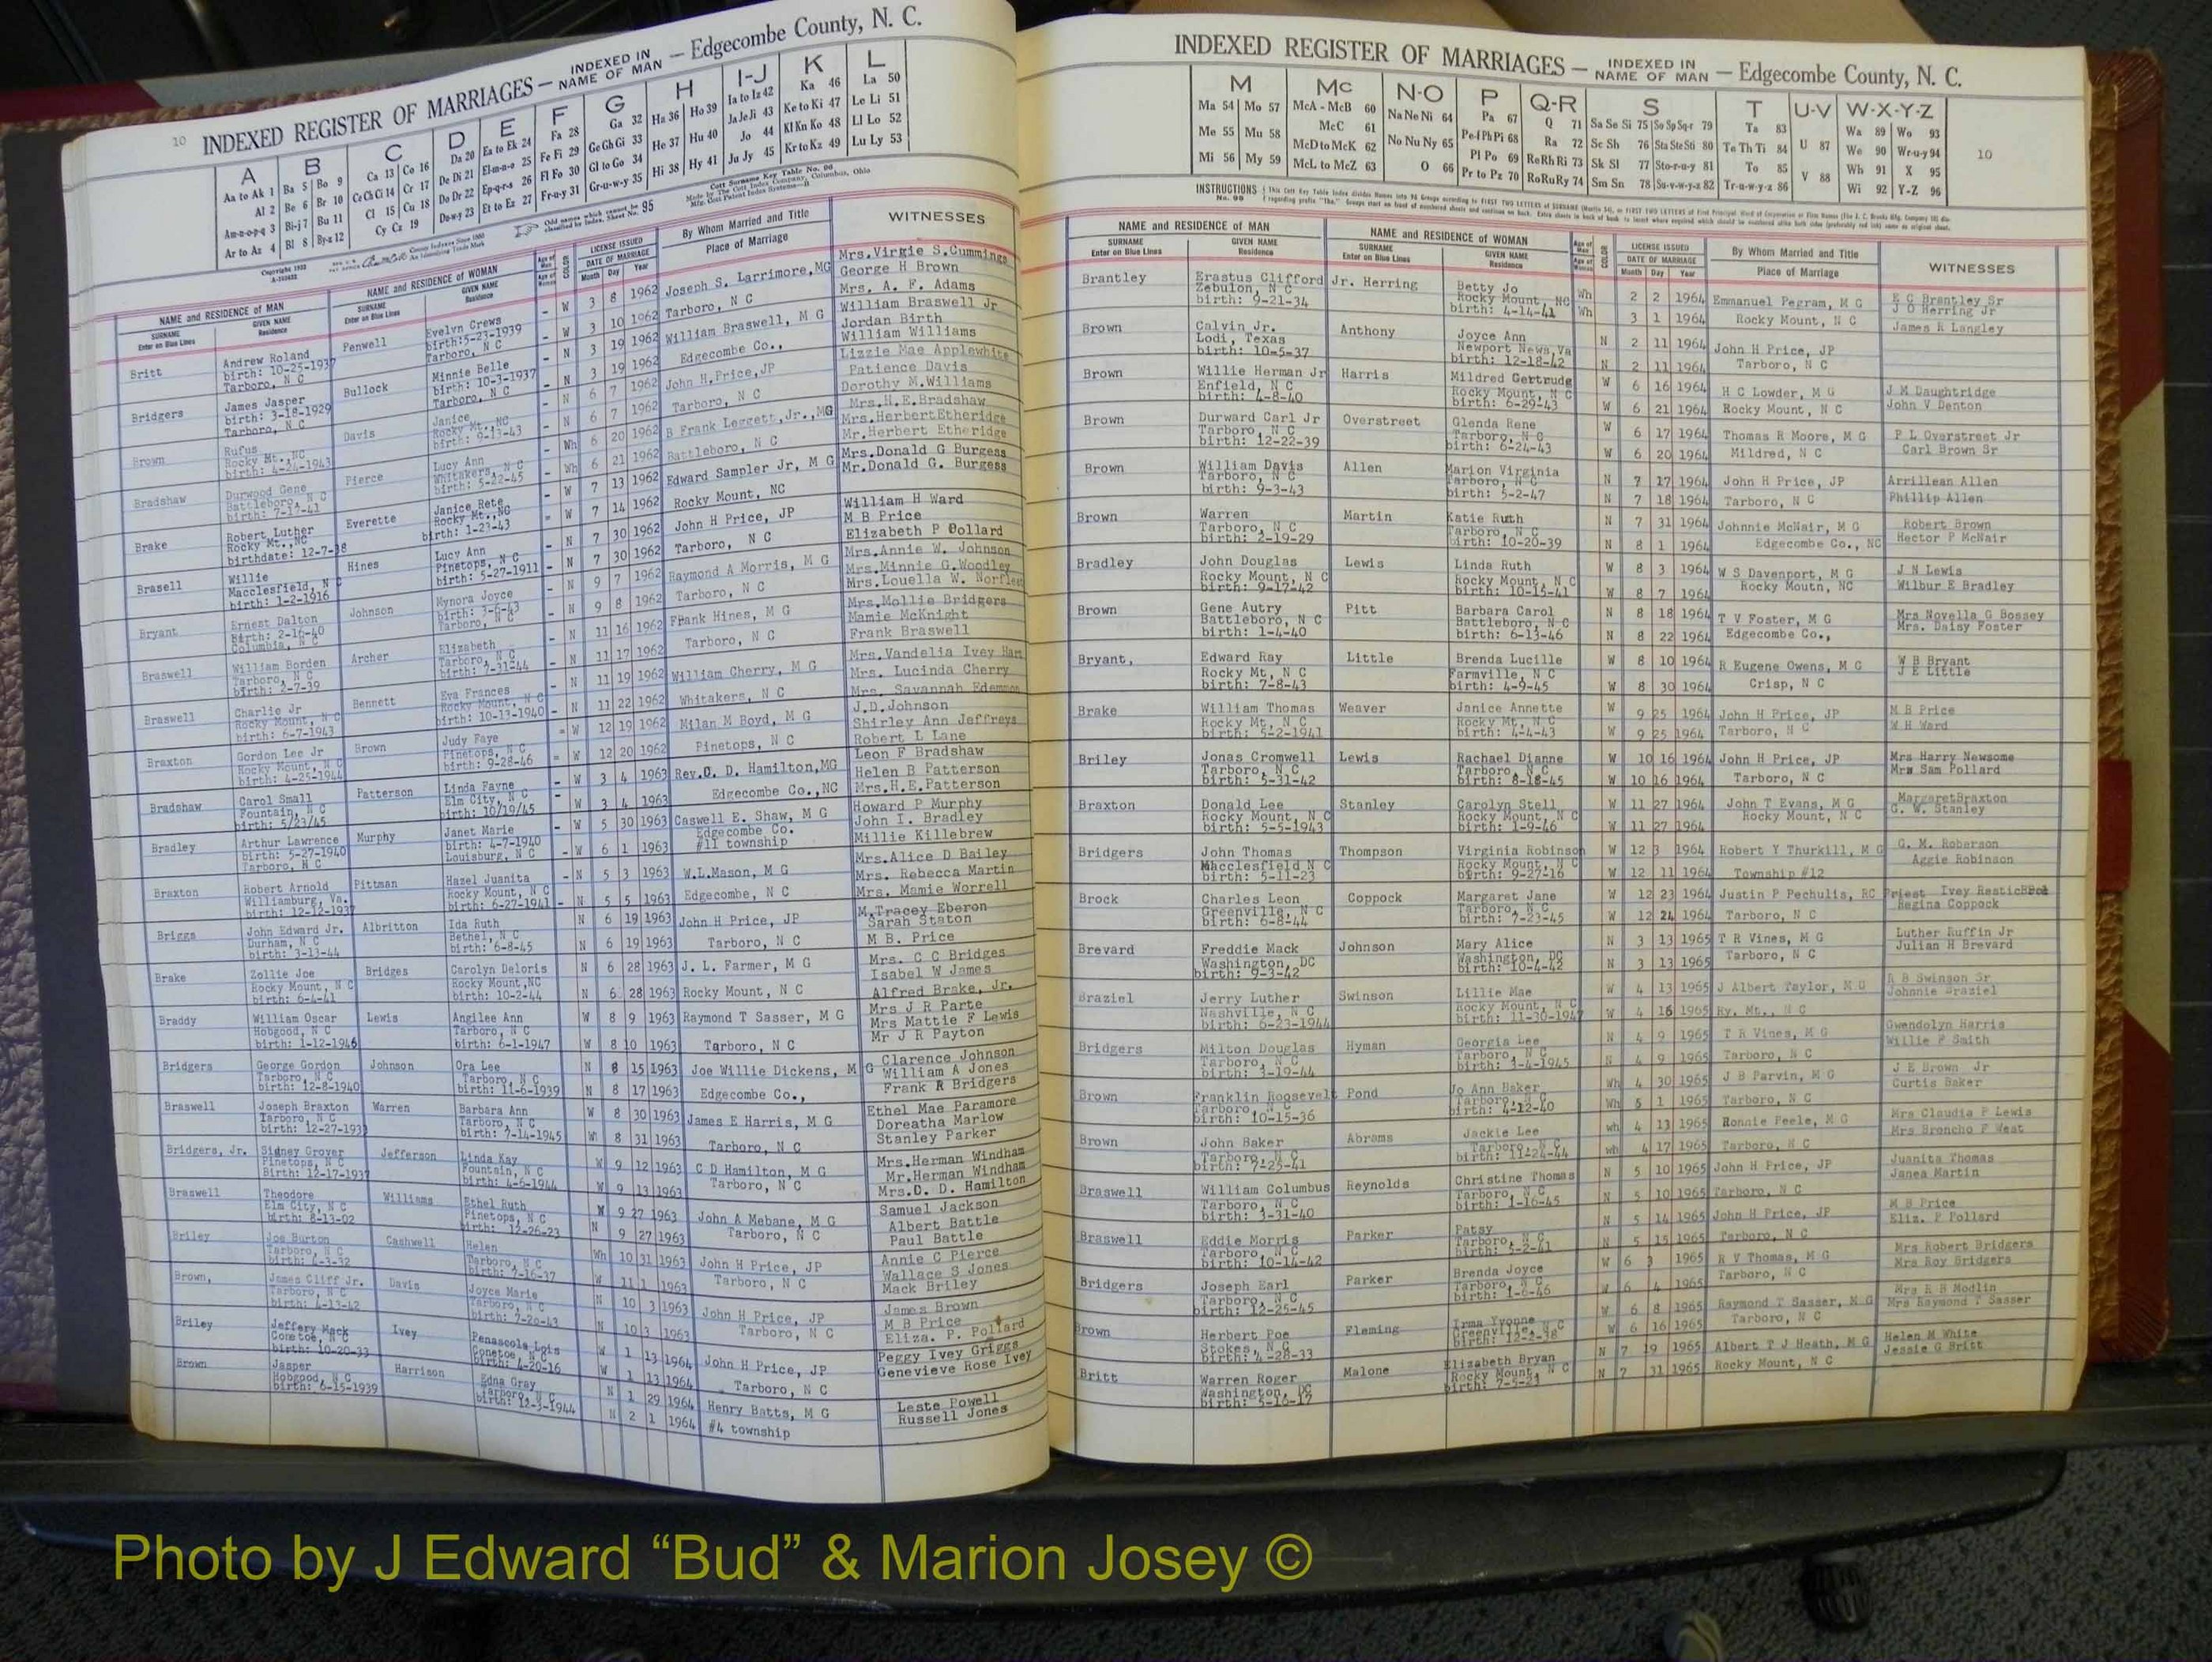 10 INDEXED REGISTER OF MARRIAGES — INDEXED IN NAME OF MAN — Edgecombe County, N. C.
A B C D E F G H I-J K L
Aa to Ak 1 Ba 5 Bo 9 Ca 13 Co 16 Da 20 Ea to Ek 24 Fa 28 Ga 32 Ha 36 Ho 39 Ia to Iz 42 Ka 46 La 50
Al 2 Be 6 Br 10 Ce Ch Ci 14 Cr 17 De Di 21 El-m-n-o 25 Fe Fi 29 Ge Gh Gi 33 He 37 Hu 40 Ja Je Ji 43 Ke to Ki 47 Le Li 51
Am-n-o-p-q 3 Bi-j 7 Bu 11 Cl 15 Cu 18 Do Dr 22 Ep-q-r-s 26 Fl Fo 30 Gl to Go 34 Hi 38 Hy 41 Jo 44 Kl Kn Ko 48 Ll Lo 52
Ar to Az 4 Bl 8 By-z 12 Cy Cz 19 Du-w-y 23 Et to Ez 27 Fr-u-y 31 Gr-u-w-y 35 Ju Jy 45 Kr to Kz 49 Lu Ly 53
NAME and RESIDENCE OF MAN NAME and RESIDENCE OF WOMAN LICENSE ISSUED By Whom Married and Title WITNESSES
SURNAME GIVEN NAME SURNAME GIVEN NAME COLOR DATE OF MARRIAGE Place of Marriage
Enter on Blue Lines Residence Enter on Blue Lines Residence Month Day Year
Britt Andrew Roland Penwell Evelyn Crews - W 3 8 1962 Joseph S. Larrimore, MG Mrs. Virgie S. Cummings
birth: 10-25-1937 birth:5-23-1939 George H Brown
Tarboro, N C Tarboro, N C - W 3 10 1962 Tarboro, N C Mrs. A. F. Adams
Bridgers James Jasper Bullock Minnie Belle - N 3 19 1962 William Braswell, M G William Braswell Jr
birth: 3-18-1929 birth: 10-3-1937 Jordan Birth
Tarboro, N C Tarboro, N C - N 3 19 1962 Edgecombe Co., William Williams
Brown Rufus Davis Janice - N 6 7 1962 John H.Price,JP Lizzie Mae Applewhite
Rocky Mt.,NC Rocky Mt.,NC Patience Davis
birth: 4-24-1943 birth: 9-13-43 - N 6 7 1962 Tarboro, N C Dorothy M.Williams
Bradshaw Durwood Gene Pierce Lucy Ann - Wh 6 20 1962 B Frank Leggett,Jr.,MG Mrs.H.E.Bradshaw
Battleboro, N C Whitakers, N C Mrs.Herbert Etheridge
birth: 7-11-41 birth: 5-22-45 - Wh 6 21 1962 Battleboro, N C Mr.Herbert Etheridge
Brake Robert Luther Everette Janice Rete - W 7 13 1962 Edward Sampler Jr, M G Mrs.Donald G Burgess
Rocky Mt.,NC Rocky Mt.,NC Mr.Donald G. Burgess
birthdate: 12-7-38 birth: 1-23-43 = W 7 14 1962 Rocky Mount, NC
Brasell Willie Hines Lucy Ann - N 7 30 1962 John H Price, JP William H Ward
Macclesfield, N C Pinetops, N C M B Price
birth: 1-2-1916 birth: 5-27-1911 - N 7 30 1962 Tarboro, N C Elizabeth P Pollard
Bryant Ernest Dalton Johnson Mynora Joyce - N 9 7 1962 Raymond A Morris, M G Mrs.Annie W. Johnson
Birth: 2-16-40 birth: 3-6-43 Mrs.Minnie G.Woodley
Columbia, N C Tarboro, N C - N 9 8 1962 Tarboro, N C Mrs.Louella W. Norfleet
Braswell William Borden Archer Elizabeth - N 11 16 1962 Frank Hines, M G Mrs.Mollie Bridgers
Tarboro, N C Tarboro, N C Mamie McKnight
birth: 2-7-39 birth: 7-31-44 - N 11 17 1962 Tarboro, N C Frank Braswell
Braswell Charlie Jr Bennett Eva Frances - N 11 19 1962 William Cherry, M G Mrs.Vandelia Ivey Hart
Rocky Mount, N C Rocky Mount, N C Mrs. Lucinda Cherry
birth: 6-7-1943 birth: 10-13-1940 - N 11 22 1962 Whitakers, N C Mrs. Savannah Edemson
Braxton Gordon Lee Jr Brown Judy Faye = W 12 19 1962 Milan M Boyd, M G J.D.Johnson
Rocky Mount, N C Pinetops, N C Shirley Ann Jeffreys
birth: 4-25-1944 birth: 9-28-46 = W 12 20 1962 Pinetops, N C Robert L Lane
Bradshaw Carol Small Patterson Linda Fayne - W 3 4 1963 Rev.O. D. Hamilton,MG Leon F Bradshaw
Fountain, N C Elm City, N C Helen B Patterson
birth: 5/23/45 birth: 10/19/45 - W 3 4 1963 Edgecombe Co.,NC Mrs.H.E.Patterson
Bradley Arthur Lawrence Murphy Janet Marie - W 5 30 1963 Caswell E. Shaw, M G Howard P Murphy
birth: 5-27-1940 birth: 4-7-1940 Edgecombe Co. John I. Bradley
Tarboro, N C Louisburg, N C - W 6 1 1963 #11 township Millie Killebrew
Braxton Robert Arnold Pittman Hazel Juanita - N 5 3 1963 W.L.Mason, M G Mrs.Alice D Bailey
Williamburg, Va. Rocky Mount, N C Mrs. Rebecca Martin
birth: 12-12-1937 birth: 6-27-1941 - N 5 5 1963 Edgecombe, N C Mrs. Mamie Worrell
Briggs John Edward Jr. Albritton Ida Ruth N 6 19 1963 John H Price, JP M.Tracey Eberon
Durham, N C Bethel, N C Sarah Staton
birth: 3-13-44 birth: 6-8-45 N 6 19 1963 Tarboro, N C M B. Price
Brake Zollie Joe Bridges Carolyn Deloris N 6 28 1963 J. L. Farmer, M G Mrs. C C Bridges
Rocky Mount, N C Rocky Mount,NC Isabel W James
birth: 6-4-41 birth: 10-2-44 N 6 28 1963 Rocky Mount, N C Alfred Brake, Jr.
Braddy William Oscar Lewis Angilee Ann W 8 9 1963 Raymond T Sasser, M G Mrs J R Parte
Hobgood, N C Tarboro, N C Mrs Mattie F Lewis
birth: 1-12-1946 birth: 6-1-1947 W 8 10 1963 Tarboro, N C Mr J R Payton
Bridgers George Gordon Johnson Ora Lee N 8 15 1963 Joe Willie Dickens, M G Clarence Johnson
Tarboro, N C Tarboro, N C William A Jones
birth: 12-8-1940 birth: 11-6-1939 N 8 17 1963 Edgecombe Co., Frank R Bridgers
Braswell Joseph Braxton Warren Barbara Ann W 8 30 1963 James E Harris, M G Ethel Mae Paramore
Tarboro, N C Tarboro, N C Doreatha Marlow
birth: 12-27-193 birth: 7-14-1945 W 8 31 1963 Tarboro, N C Stanley Parker
Bridgers, Jr. Sidney Grover Jefferson Linda Kay W 9 12 1963 C D Hamilton, M G Mrs.Herman Windham
Pinetops, N C Fountain, N C Mr.Herman Windham
Birth: 12-17-1937 birth: 4-6-1944 W 9 13 1963 Tarboro, N C Mrs.O. D. Hamilton
Braswell Theodore Williams Ethel Ruth N 9 27 1963 John A Mebane, M G Samuel Jackson
Elm City, N C Pinetops, N C Albert Battle
birth: 8-13-02 birth: 12-26-23 N 9 27 1963 Tarboro, N C Paul Battle
Briley Joe Burton Cashwell Helen Wh 10 31 1963 John H Price, JP Annie C Pierce
Tarboro, N C Tarboro, N C Wallace S Jones
birth: 4-3-32 birth: 7-16-37 W 11 1 1963 Tarboro, N C Mack Briley
Brown, James Cliff Jr. Davis Joyce Marie N 10 3 1963 John H Price, JP James Brown
Tarboro, N C Tarboro, N C M B Price
birth: 4-13-42 birth: 7-20-43 N 10 3 1963 Tarboro, N C Eliza. P. Pollard
Briley Jeffery Mack Ivey Penascola Lois W 1 13 1964 John H Price, JP Peggy Ivey Griggs
Conetoe, N C Conetoe, N C Genevieve Rose Ivey
birth: 10-20-33 birth: 4-20-16 W 1 13 1964 Tarboro, N C
Brown Jasper Harrison Edna Gray N 1 29 1964 Henry Batts, M G Leste Powell
Hobgood, N C Tarboro, N C Russell Jones
birth: 6-15-1939 birth: 12-3-1944 N 2 1 1964 #4 township
INDEXED REGISTER OF MARRIAGES — INDEXED IN NAME OF MAN — Edgecombe County, N. C.
M Mc N-O P Q-R S T U-V W-X-Y-Z
Ma 54 Mo 57 McA - McB 60 Na Ne Ni 64 Pa 67 Q 71 Sa Se Si 75 So Sp Sq-r 79 Ta 83 U 87 Wa 89 Wo 93
Me 55 Mu 58 McC 61 No Nu Ny 65 Pe-f Ph Pi 68 Ra 72 Sc Sh 76 Sta Ste Sti 80 Te Th Ti 84 V 88 We 90 Wr-u-y 94 10
Mi 56 My 59 McD to McK 62 O 66 Pl Po 69 Re Rh Ri 73 Sk Sl 77 Sto-r-u-y 81 To 85 Wh 91 X 95
McL to McZ 63 Pr to Pz 70 Ro Ru Ry 74 Sm Sn 78 Su-v-w-y-z 82 Tr-u-w-y-z 86 Wi 92 Y-Z 96
NAME and RESIDENCE OF MAN NAME and RESIDENCE OF WOMAN LICENSE ISSUED By Whom Married and Title WITNESSES
SURNAME GIVEN NAME SURNAME GIVEN NAME COLOR DATE OF MARRIAGE Place of Marriage
Enter on Blue Lines Residence Enter on Blue Lines Residence Month Day Year
Brantley Erastus Clifford Jr. Herring Betty Jo Wh 2 2 1964 Emmanuel Pegram, M G E C Brantley Sr
Zebulon, N C Rocky Mount, NC J O Herring Jr
birth: 9-21-34 birth: 4-14-41 Wh 3 1 1964 Rocky Mount, N C James R Langley
Brown Calvin Jr. Anthony Joyce Ann N 2 11 1964 John H Price, JP
Lodi, Texas Newport News,Va
birth: 10-5-37 birth: 12-18-42 N 2 11 1964 Tarboro, N C
Brown Willie Herman Jr Harris Mildred Gertrude W 6 16 1964 H C Lowder, M G J M Daughtridge
Enfield, N C Rocky Mount, N C
birth: 4-8-40 birth: 6-29-43 W 6 21 1964 Rocky Mount, N C John V Denton
Brown Durward Carl Jr Overstreet Glenda Rene W 6 17 1964 Thomas R Moore, M G P L Overstreet Jr
Tarboro, N C Tarboro, N C
birth: 12-22-39 birth: 6-24-43 W 6 20 1964 Mildred, N C Carl Brown Sr
Brown William Davis Allen Marion Virginia N 7 17 1964 John H Price, JP Arrillean Allen
Tarboro, N C Tarboro, N C
birth: 9-3-43 birth: 5-2-47 N 7 18 1964 Tarboro, N C Phillip Allen
Brown Warren Martin Katie Ruth N 7 31 1964 Johnnie McNair, M G Robert Brown
Tarboro, N C Tarboro, N C
birth: 2-19-29 birth: 10-20-39 N 8 1 1964 Edgecombe Co., NC Hector P McNair
Bradley John Douglas Lewis Linda Ruth W 8 3 1964 W S Davenport, M G J N Lewis
Rocky Mount, N C Rocky Mount, N C Rocky Moutn, NC
birth: 9-17-42 birth: 10-15-41 W 8 7 1964 Wilbur E Bradley
Brown Gene Autry Pitt Barbara Carol N 8 18 1964 T V Foster, M G Mrs Novella G Bossey
Battleboro, N C Battleboro, N C Mrs. Daisy Foster
birth: 1-4-40 birth: 6-13-46 N 8 22 1964 Edgecombe Co.,
Bryant, Edward Ray Little Brenda Lucille W 8 10 1964 R Eugene Owens, M G W B Bryant
Rocky Mt, N C Farmville, N C J E Little
birth: 7-8-43 birth: 4-9-45 W 8 30 1964 Crisp, N C
Brake William Thomas Weaver Janice Annette W 9 25 1964 John H Price, JP M B Price
Rocky Mt, N C Rocky Mt, N C
birth: 5-2-1941 birth: 4-4-43 W 9 25 1964 Tarboro, N C W H Ward
Briley Jonas Cromwell Lewis Rachael Dianne W 10 16 1964 John H Price, JP Mrs Harry Newsome
Tarboro, N C Tarboro, N C Mrs Sam Pollard
birth: 5-31-42 birth: 8-18-45 W 10 16 1964 Tarboro, N C
Braxton Donald Lee Stanley Carolyn Stell W 11 27 1964 John T Evans, M G Margaret Braxton
Rocky Mount, N C Rocky Mount, N C Rocky Mount, N C G. W. Stanley
birth: 5-5-1943 birth: 1-9-46 W 11 27 1964
Bridgers John Thomas Thompson Virginia Robinson W 12 3 1964 Robert Y Thurkill, M G G. M. Roberson
Macclesfield N C Rocky Mount, N C Aggie Robinson
birth: 5-11-23 birth: 9-27-16 W 12 11 1964 Township #12
Brock Charles Leon Coppock Margaret Jane W 12 23 1964 Justin P Pechulis, RC Priest Ivey
Greenville, N C Tarboro, N C Regina Coppock
birth: 6-8-44 birth: 7-23-45 W 12 24 1964 Tarboro, N C
Brevard Freddie Mack Johnson Mary Alice N 3 13 1965 T R Vines, M G Luther Ruffin Jr
Washington, DC Washington, DC Julian H Brevard
birth: 9-3-42 birth: 10-4-42 N 3 13 1965 Tarboro, N C
Braziel Jerry Luther Swinson Lillie Mae W 4 13 1965 J Albert Taylor, M G R B Swinson Sr
Nashville, N C Rocky Mount, N C Johnnie Braziel
birth: 6-23-1944 birth: 11-30-1947 W 4 16 1965 Ry. Mt., N C
Bridgers Milton Douglas Hyman Georgia Lee N 4 9 1965 T R Vines, M G Gwendolyn Harris
Tarboro, N C Tarboro, N C Willie P Smith
birth: 3-19-44 birth: 3-4-1945 N 4 9 1965 Tarboro, N C
Brown Franklin Roosevelt Pond Jo Ann Baker Wh 4 30 1965 J B Parvin, M G J E Brown Jr
Tarboro, N C Tarboro, N C Curtis Baker
birth: 10-15-36 birth: 4-12-40 Wh 5 1 1965 Tarboro, N C
Brown John Baker Abrams Jackie Lee wh 4 13 1965 Ronnie Peele, M G Mrs Claudia P Lewis
Tarboro, N C Tarboro, N C Mrs Broncho F West
birth: 7-25-41 birth: 11-24-44 wh 4 17 1965 Tarboro, N C
Braswell William Columbus Reynolds Christine Thomas N 5 10 1965 John H Price, JP Juanita Thomas
Tarboro, N C Tarboro, N C Janea Martin
birth: 3-31-40 birth: 1-16-45 N 5 10 1965 Tarboro, N C
Braswell Eddie Morris Parker Patsy N 5 14 1965 John H Price, JP M B Price
Tarboro, N C Tarboro, N C Eliz. P Pollard
birth: 10-14-42 birth: 5-2-41 N 5 15 1965 Tarboro, N C
Bridgers Joseph Earl Parker Brenda Joyce W 6 3 1965 R V Thomas, M G Mrs Robert Bridgers
Tarboro, N C Tarboro, N C Tarboro, N C Mrs Roy Bridgers
birth: 12-25-45 birth: 1-6-46 W 6 4 1965
Brown Herbert Poe Fleming Irma Yvonne W 6 8 1965 Raymond T Sasser, M G Mrs R B Modlin
Stokes, N C Greenville, N C Tarboro, N C Mrs Raymond T Sasser
birth: 4-28-33 birth: 12-2-38 W 6 16 1965
Britt Warren Roger Malone Elizabeth Bryan N 7 19 1965 Albert T J Heath, M G Helen M White
Washington, DC Rocky Mount, N C Jessie G Britt
birth: 5-16-17 birth: 7-5-21 N 7 31 1965 Rocky Mount, N C
Photo by J Edward “Bud” & Marion Josey ©